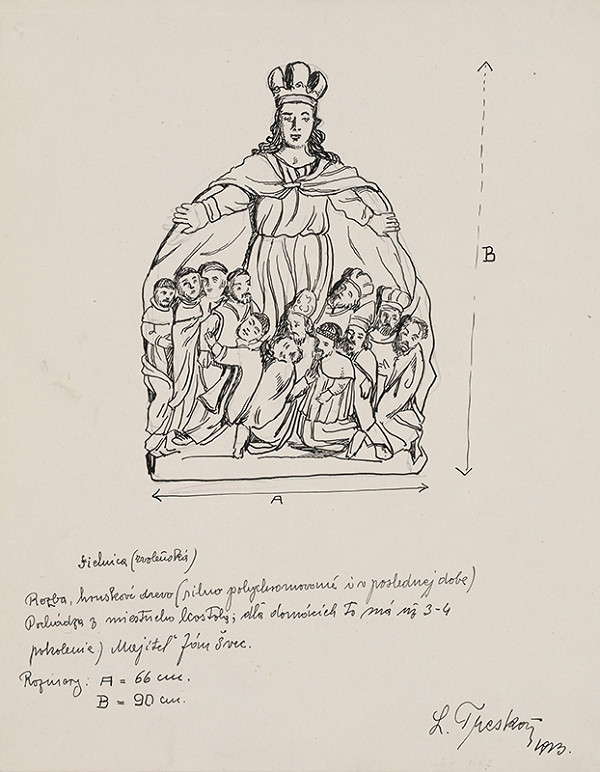 B
A
Sielnica (zvolenská)
Rezba, hruskové drevo (silno polychromované i v poslednej dobe)
Pochádza z miestneho kostola; dľa domácich to má už 3-4
pokolenie) Majiteľ Ján Švec.
Rozmery: A = 66 cm.
B = 90 cm.
L. Treskoň
1923.